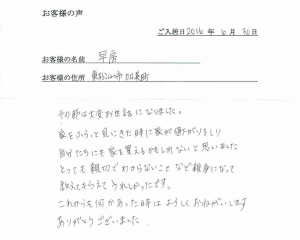 お客様の声
ご入居日 2016 年 6 月 30 日
お客様の名前 早房
お客様の住所 東松山市 加美町
その節は大変お世話になりました。
家をふらっと見にきた時に家が値下がりをし
自分たちにも家を買えるかもしれないと思いました
とっても親切でわからないことなど親身になって
教えてもらえてうれしかったです。
これからも何かあった時はよろしくおねがいします
ありがとうございました。